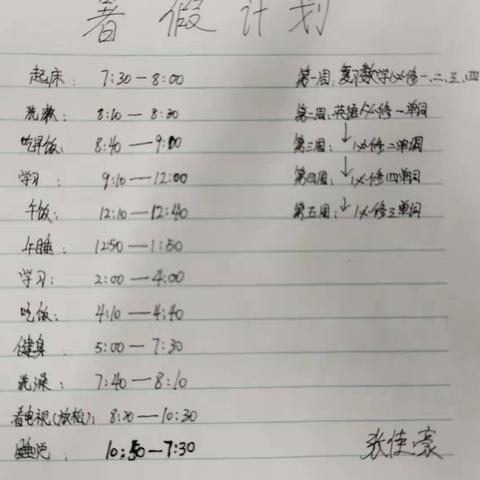 暑假计划
起床: 7:30—8:00
洗漱: 8:10—8:30
吃早饭: 8:40—9:00
学习: 9:10—12:00
午饭: 12:10—12:40
午睡: 12:50—1:50
学习: 2:00—4:00
吃饭: 4:10—4:40
健身: 5:00—7:30
洗澡: 7:40—8:10
看电视(放松): 8:20—10:30
睡觉: 10:50—7:30
第一周: 复习数学必修一、二、三、四
第二周: 英语必修一单词
第三周: ↓ 必修二单词
第四周: ↓ 必修四单词
第五周: ↓ 必修三单词
张佳豪